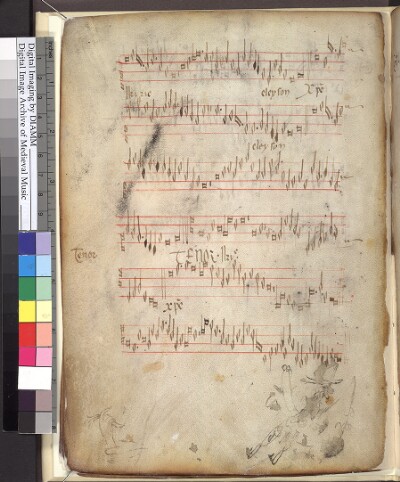 Digital Imaging by DIAMM
Digital Image Archive of Medieval Music
eleyson Xpe
eleyson
Tenor
TENOR
xpe